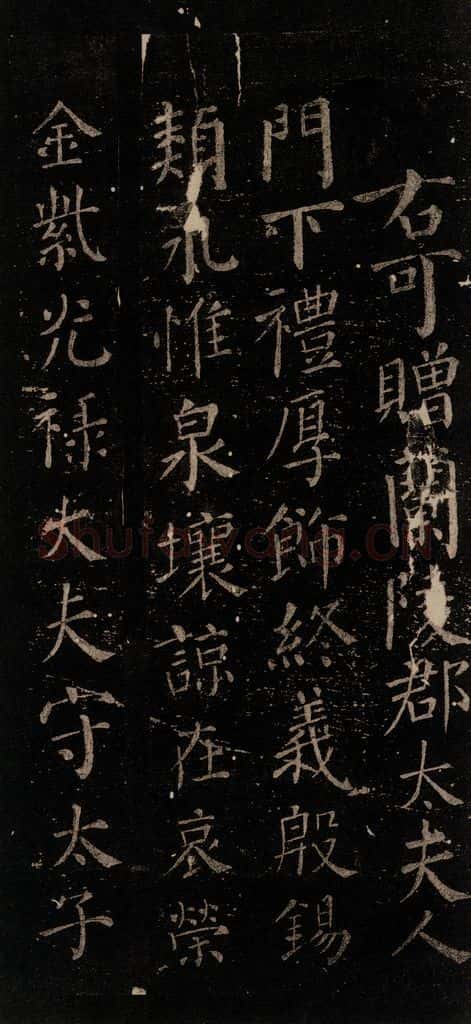 右可贈蘭陵郡太夫人
門下禮厚飾終義殷錫
類永惟泉壤諒在哀榮
金紫光禄大夫守太子
Shufawang.CN